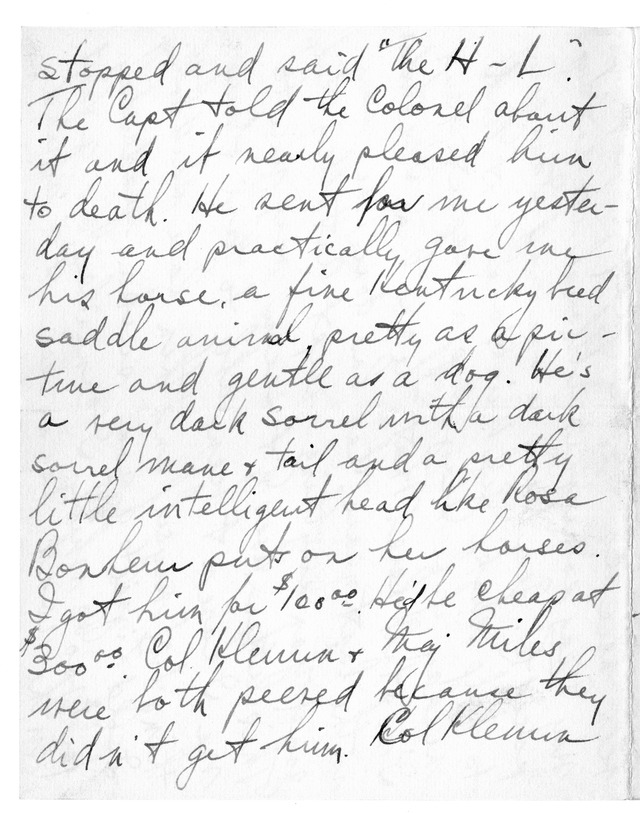 stopped and said "The H - L".
The Capt told the Colonel about
it and it nearly pleased him
to death. He sent for me yester-
day and practically gave me
his horse, a fine Kentucky bred
saddle animal, pretty as a pic-
ture and gentle as a dog. He's
a very dark sorrel with a dark
sorrel mane + tail and a pretty
little intelligent head like Rosa
Bonheur puts on her horses.
I got him for $100.00. He'd be cheap at
$300.00. Col. Klemm + Maj. Miles
were both peeved because they
didn't get him. Col Klemm